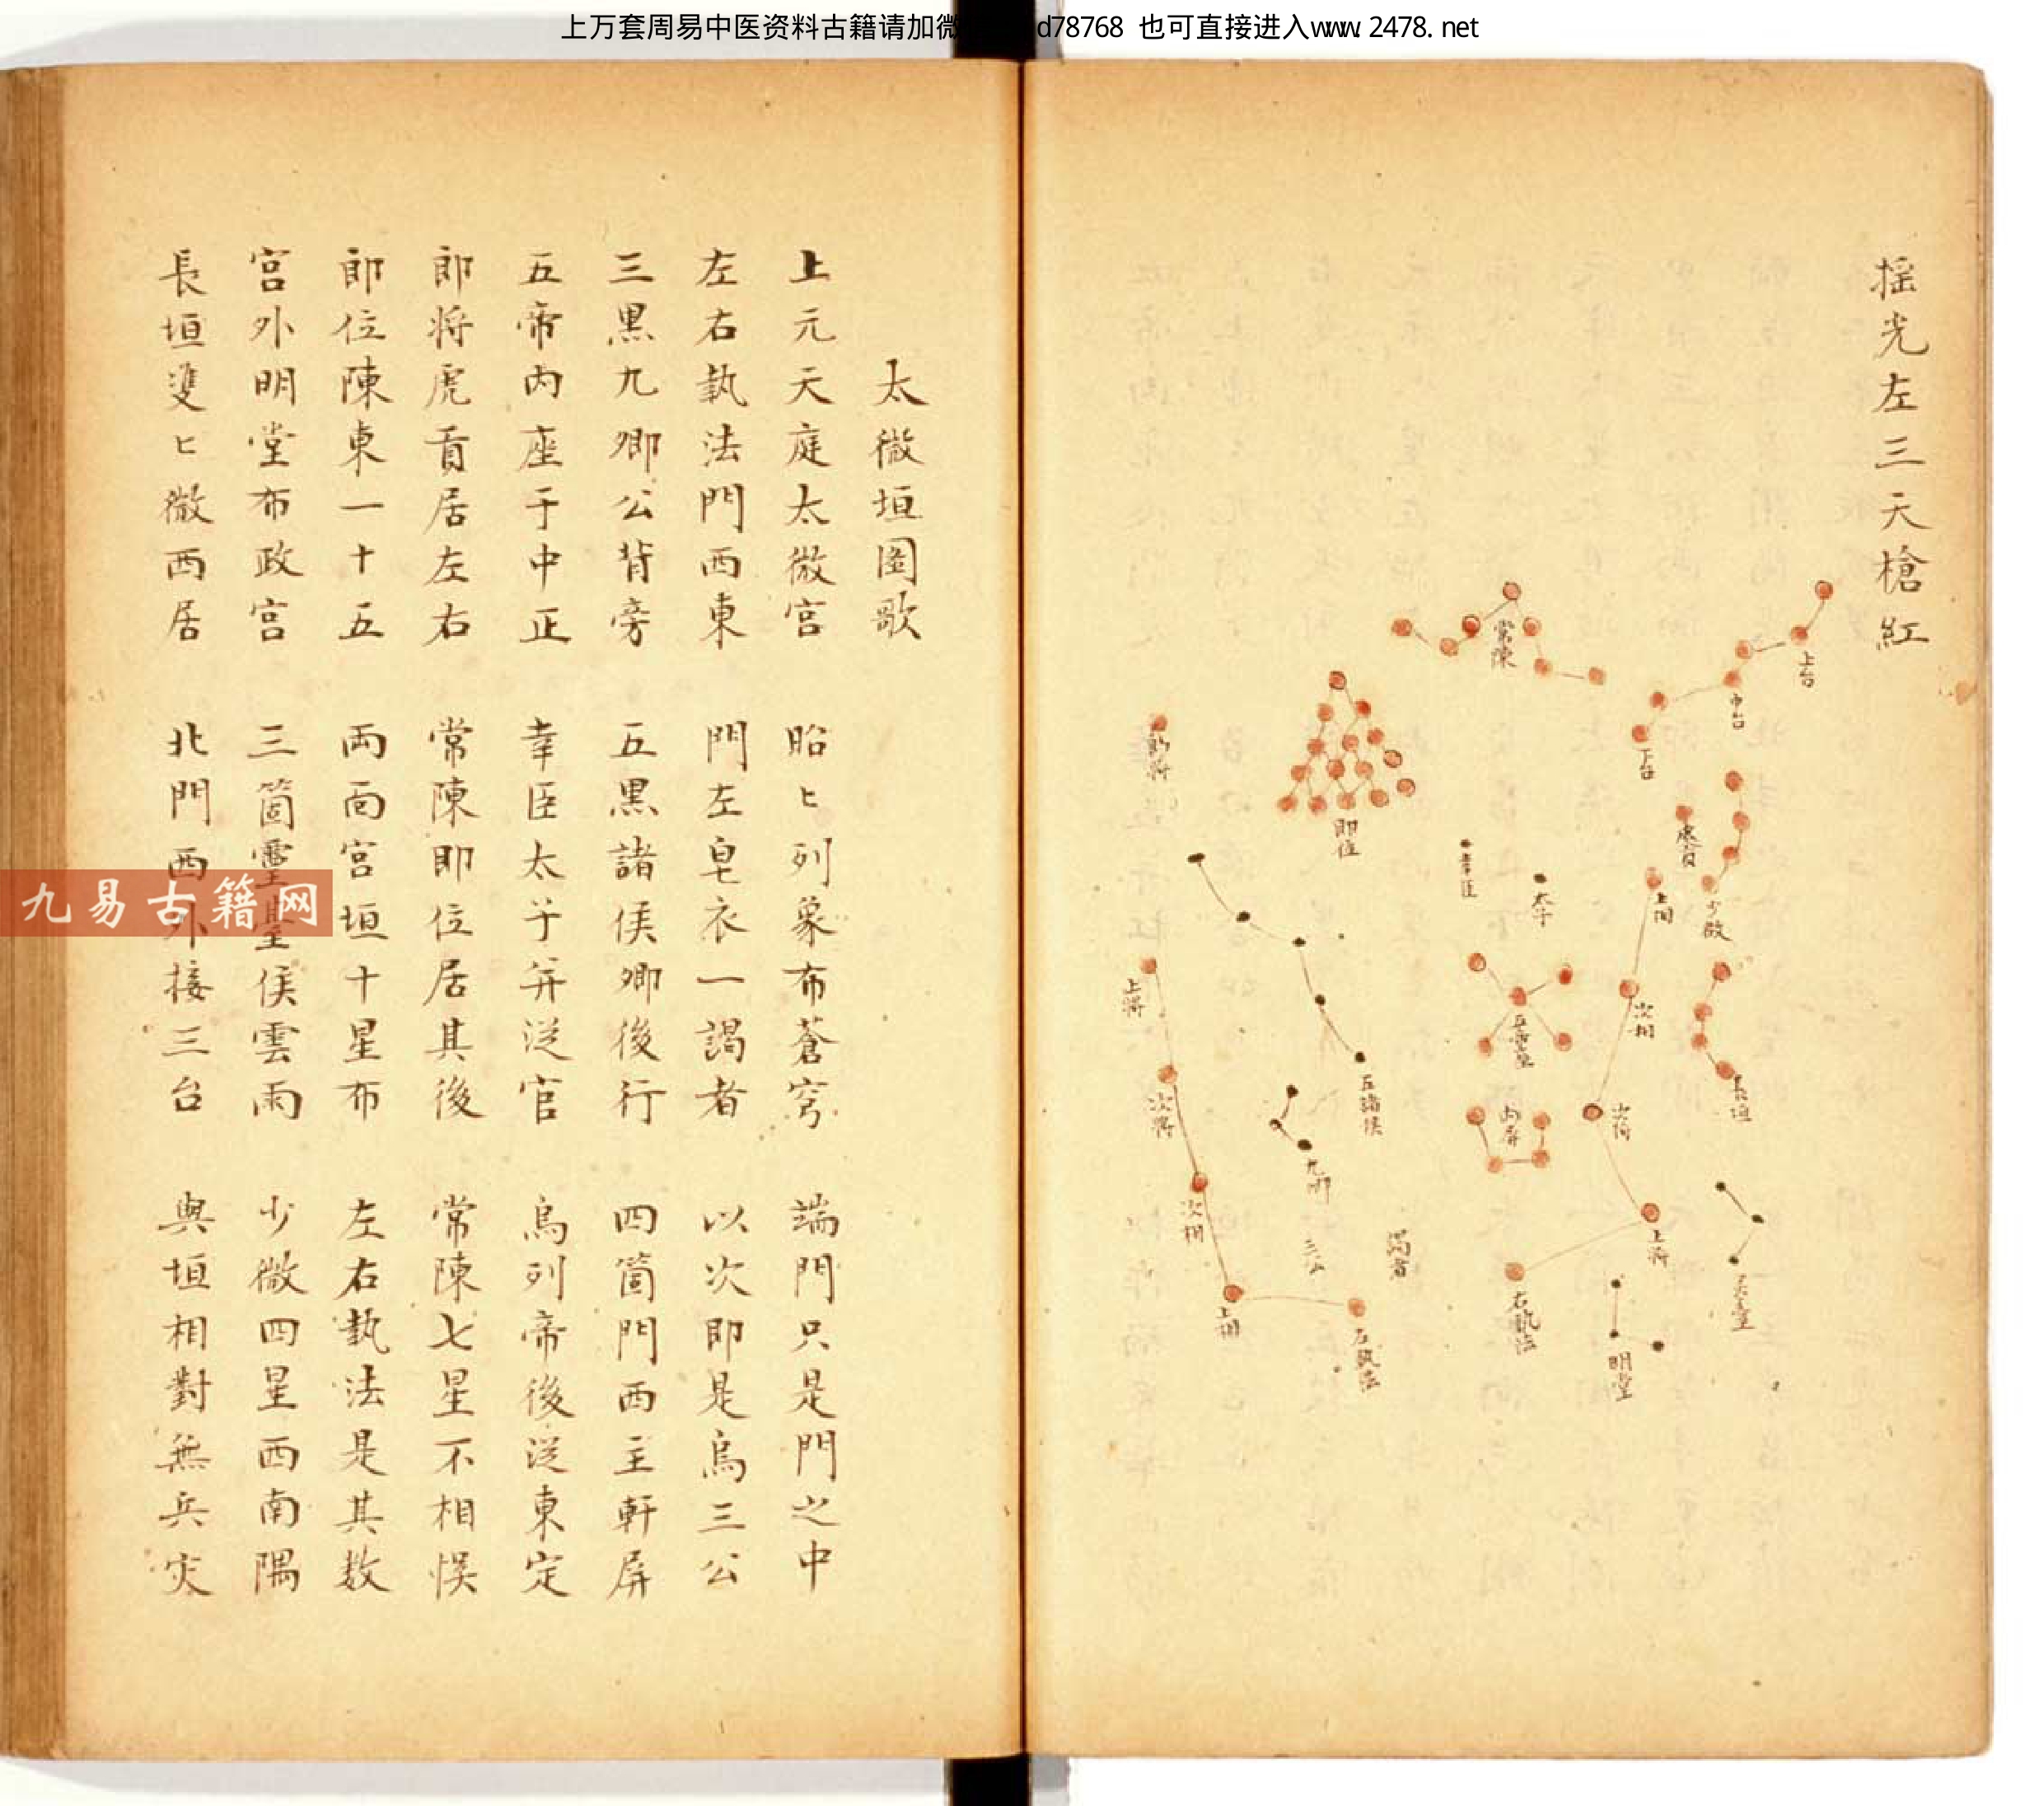 上万套周易中医资料古籍请加微 d78768 也可直接进入www.2478.net
搖光左三天槍紅
常陳
上台
中台
下台
郎将
郎位
虎賁
少微
幸臣
太子
上相
次相
五帝座
上將
次將
次相
上相
五諸侯
九卿
三公
謁者
內屏
次將
長垣
上將
右執法
左執法
明堂
灵臺
太微垣圖歌
上元天庭太微宮 昭〻列象布蒼穹 端門只是門之中
左右執法門西東 門左皂衣一謁者 以次即是烏三公
三黑九卿公背旁 五黑諸侯卿後行 四箇門西主軒屏
五帝內座于中正 幸臣太子并從官 烏列帝後從東定
郎將虎賁居左右 常陳郎位居其後 常陳七星不相悮
郎位陳東一十五 兩面宮垣十星布 左右執法是其数
宮外明堂布政宮 三箇靈臺侯雲雨 少微四星西南隅
長垣雙〻微西居 北門西外接三台 與垣相對無兵灾
九易古籍网